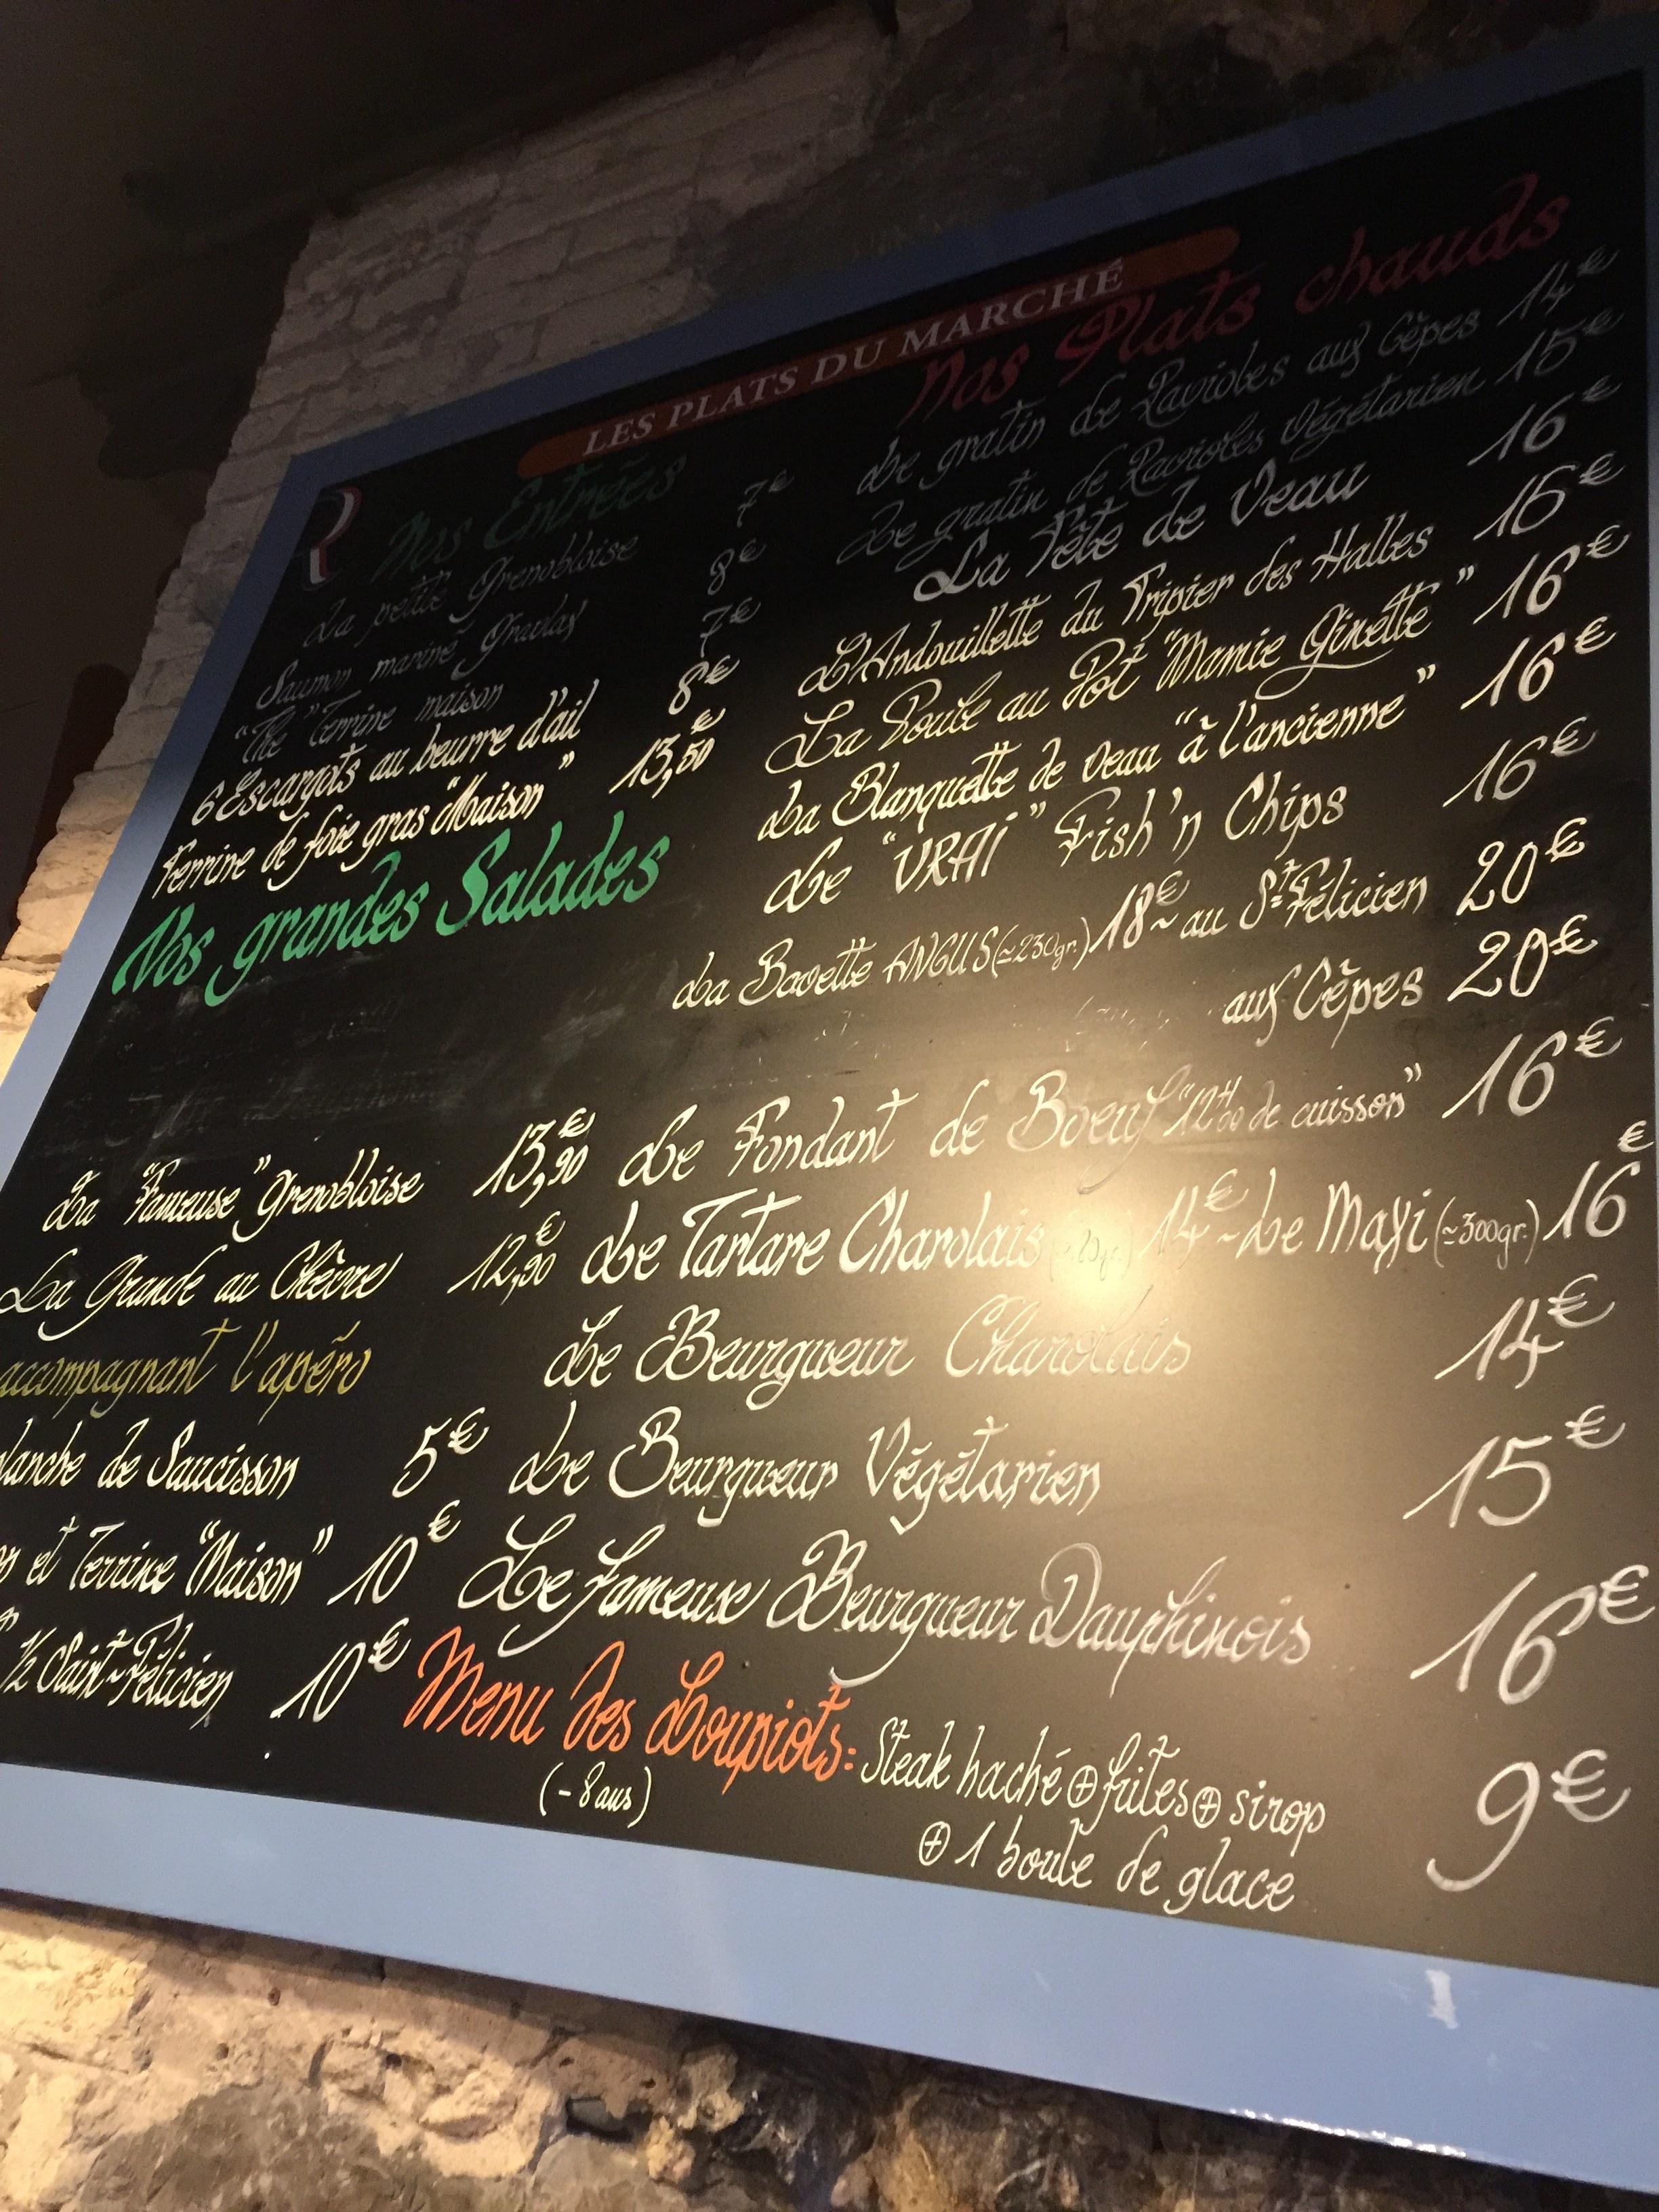 LES PLATS DU MARCHÉ
R
Nos Entrées
La petite Grenobloise 7€
Saumon mariné Gravlax 8€
"The" Terrine maison 7€
6 Escargots au beurre d'ail 8€
Terrine de foie gras "Maison" 13,50€
Nos grandes Salades
La "Fameuse" Grenobloise 13,90€
La Grande au Chèvre 12,90€
accompagnant l'apéro
de Saucisson 5€
et Terrine "Maison" 10€
1/2 Saint-Félicien 10€
Nos Plats chauds
Le gratin de Ravioles aux Cèpes 14€
Le gratin de Ravioles Végétarien 15€
La Tête de Veau 16€
L'Andouillette du Tripier des Halles 16€
La Poule au Pot "Mamie Ginette" 16€
La Blanquette de veau "à l'ancienne" 16€
Le "VRAI" Fish'n Chips 16€
La Bavette ANGUS (≃230gr.) 18€ ~ au St Félicien 20€
aux Cèpes 20€
Le Fondant de Boeuf "12H00 de cuisson" 16€
Le Tartare Charolais 14€ ~ Le Maxi (≃300gr.) 16€
Le Beurgueur Charolais 14€
Le Beurgueur Végétarien 15€
Le fameux Beurgueur Dauphinois 16€
Menu des Loupiots: Steak haché ⊕ frites ⊕ sirop 9€
(- 8 ans)
⊕ 1 boule de glace